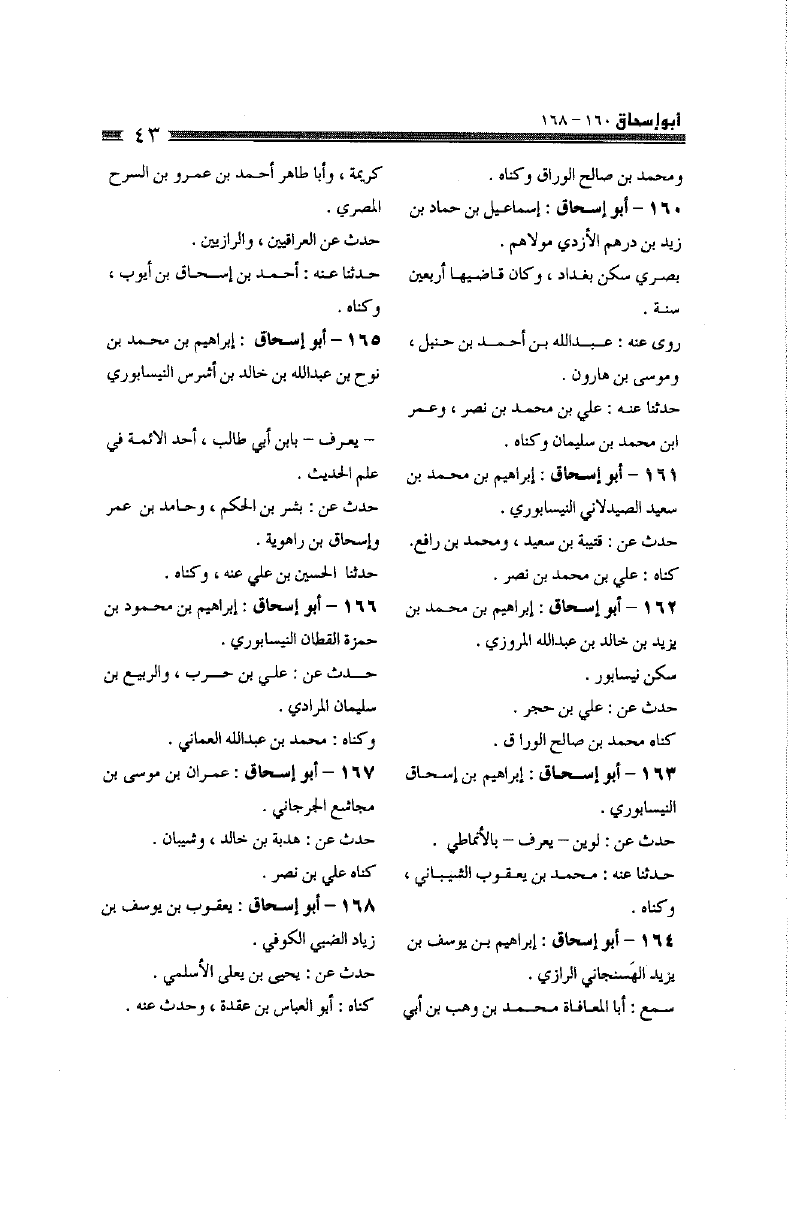 أبوإسحاق ١٦٠ - ١٦٨
٤٣
ومحمد بن صالح الوراق وكناه .
١٦٠ – أبو إسحاق : إسماعيل بن حماد بن
زيد بن درهم الأزدي مولاهم .
بصري سكن بغداد ، وكان قاضيها أربعين
سنة .
روى عنه : عبدالله بن أحمد بن حنبل ،
وموسى بن هارون .
حدثنا عنه : علي بن محمد بن نصر ، وعمر
ابن محمد بن سليمان وكناه .
١٦١ – أبو إسحاق : إبراهيم بن محمد بن
سعيد الصيدلاني النيسابوري .
حدث عن : قتيبة بن سعيد ، ومحمد بن رافع.
كناه : علي بن محمد بن نصر .
١٦٢ – أبو إسحاق : إبراهيم بن محمد بن
يزيد بن خالد بن عبدالله المروزي .
سكن نيسابور .
حدث عن : علي بن حجر .
كناه محمد بن صالح الورا ق .
١٦٣ – أبو إسحاق : إبراهيم بن إسحاق
النيسابوري .
حدث عن : لوين – يعرف – بالأنماطي .
حدثنا عنه : محمد بن يعقوب الشيباني ،
وكناه .
١٦٤ – أبو إسحاق : إبراهيم بن يوسف بن
يزيد الهَسنجاني الرازي .
سمع : أبا المعافاة محمد بن وهب بن أبي
كريمة ، وأبا طاهر أحمد بن عمرو بن السرح
المصري .
حدث عن العراقيين ، والرازيين .
حدثنا عنه : أحمد بن إسحاق بن أيوب ،
وكناه .
١٦٥ – أبو إسحاق : إبراهيم بن محمد بن
نوح بن عبدالله بن خالد بن أشرس النيسابوري
– يعرف – بابن أبي طالب ، أحد الائمة في
علم الحديث .
حدث عن : بشر بن الحكم ، وحامد بن عمر
وإسحاق بن راهوية .
حدثنا الحسين بن علي عنه ، وكناه .
١٦٦ – أبو إسحاق : إبراهيم بن محمود بن
حمزة القطان النيسابوري .
حدث عن : علي بن حرب ، والربيع بن
سليمان المرادي .
وكناه : محمد بن عبدالله العماني .
١٦٧ – أبو إسحاق : عمران بن موسى بن
مجاشع الجرجاني .
حدث عن : هدبة بن خالد ، وشيبان .
كناه علي بن نصر .
١٦٨ – أبو إسحاق : يعقوب بن يوسف بن
زياد الضبي الكوفي .
حدث عن : يحيى بن يعلى الأسلمي .
كناه : أبو العباس بن عقدة ، وحدث عنه .